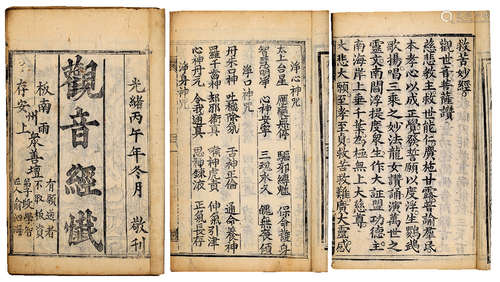 光緒丙午年冬月 敬刊
觀音經懺
有願送者
不取板資
眾善壇
淨心神咒
太上台星 應變無停 驅邪縛魅 保命護身
智慧明淨 心神安寧 三魂永久 魄無喪傾
淨口神咒
丹朱口神 吐穢除氛 舌神正倫 通命養神
羅千齒神 却邪衛真 喉神虎賁 氣引津
心神丹元 令我通真 思神鍊液 氣長存
淨身神咒
救苦妙經
觀世音菩薩讚
慈悲教主救世能仁廣施甘露普諭羣氓
本孝心以成正覺發誓願以度浮生鸚鵡
歌揚唱三乘之妙法龍女讚誦演萬世之
靈文南閻浮提度眾生作大証盟功德主
南海岸上垂千葉為上大慈尊
大悲大願至孝至貞救苦救難廣大靈感